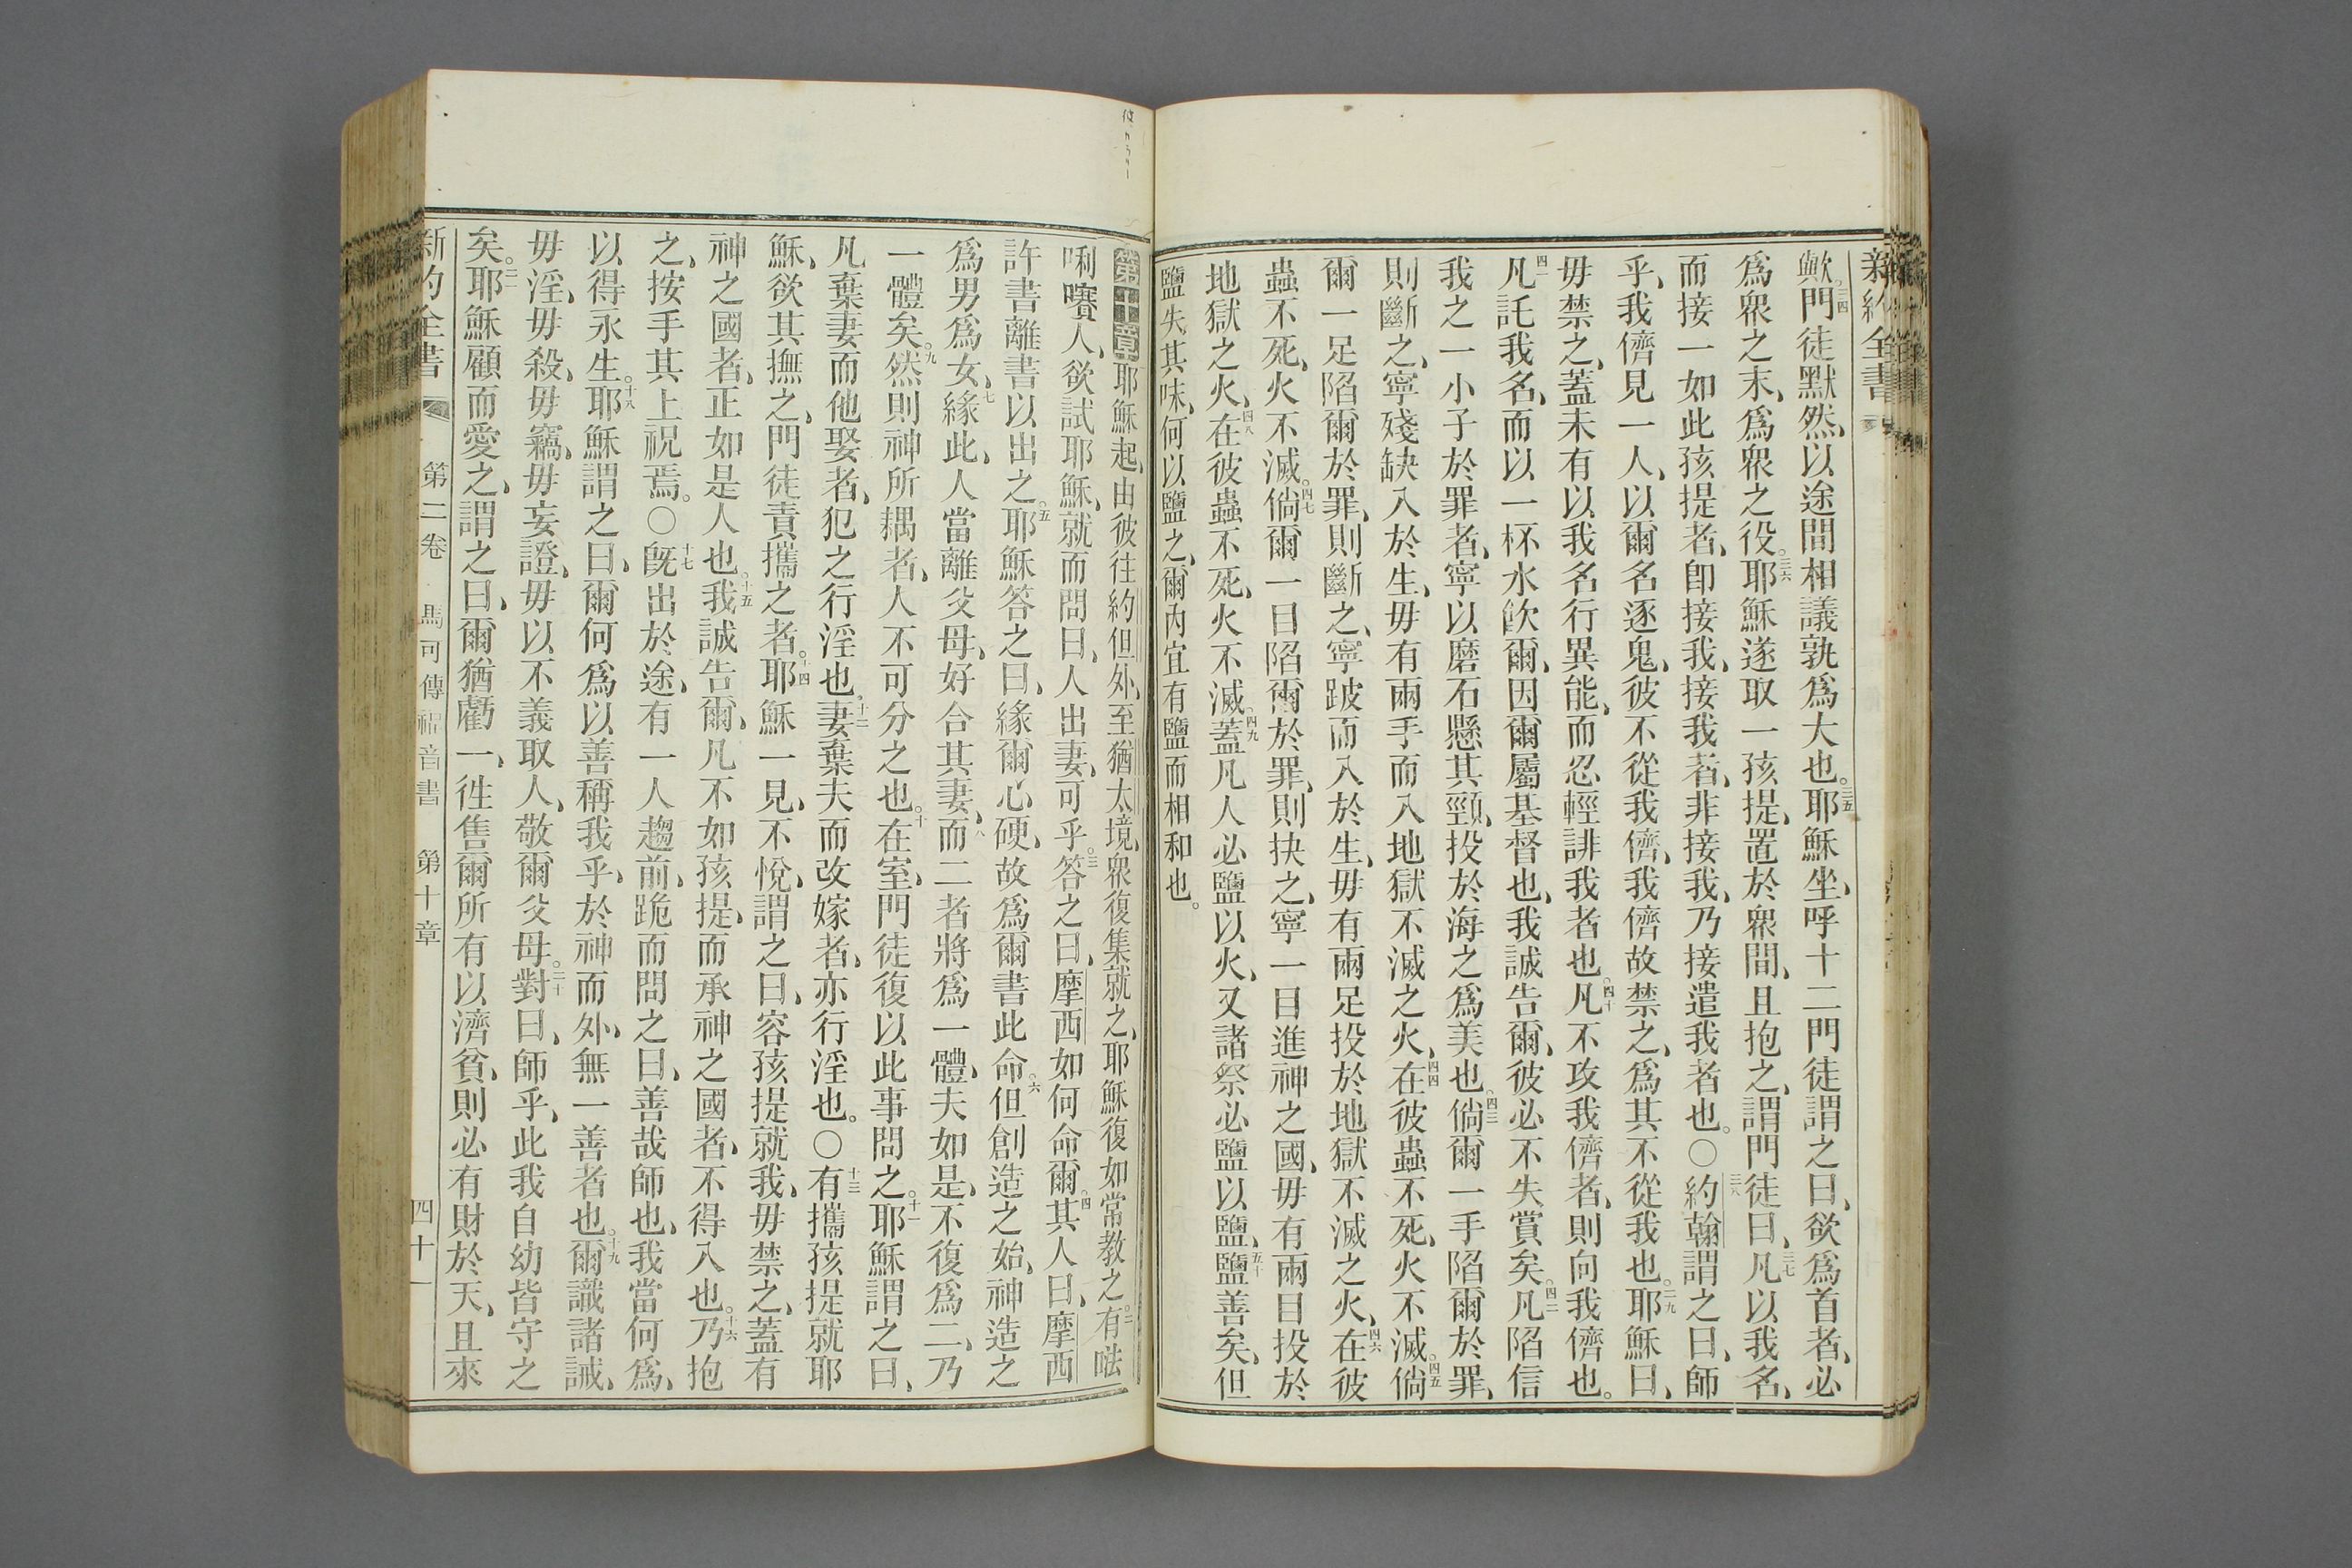 新約全書
歟、三四門徒默然、以途間相議孰爲大也。三五耶穌坐、呼十二門徒謂之曰、欲爲首者、必
爲衆之末、爲衆之役。三六耶穌遂取一孩提、置於衆間、且抱之、謂門徒曰、三七凡以我名、
而接一如此孩提者、卽接我、接我者、非接我、乃接遣我者也。〇三八約翰謂之曰、師
乎、我儕見一人、以爾名逐鬼、彼不從我儕、我儕故禁之、爲其不從我也。三九耶穌曰、
毋禁之、蓋未有以我名行異能、而忍輕誹我者也。四十凡不攻我儕者、則向我儕也。
四一凡託我名、而以一杯水飮爾、因爾屬基督也、我誠告爾、彼必不失賞矣。四二凡陷信
我之一小子於罪者、寧以磨石懸其頸、投於海之爲美也。四三倘爾一手陷爾於罪、
則斷之、寧殘缺入於生、毋有兩手而入地獄不滅之火、四四在彼蟲不死、火不滅。四五倘
爾一足陷爾於罪、則斷之、寧跛而入於生、毋有兩足投於地獄不滅之火、四六在彼
蟲不死、火不滅。四七倘爾一目陷爾於罪、則抉之、寧一目進神之國、毋有兩目投於
地獄之火、四八在彼蟲不死、火不滅。四九蓋凡人必鹽以火、又諸祭必鹽以鹽、五十鹽善矣、但
鹽失其味、何以鹽之、爾內宜有鹽而相和也。
第十章 耶穌起、由彼往約但外、至猶太境、衆復集就之、耶穌復如常教之。二有𠵽
唎㘔人、欲試耶穌、就而問曰、人出妻、可乎。三答之曰、摩西如何命爾。四其人曰、摩西
許書離書以出之。五耶穌答之曰、緣爾心硬、故爲爾書此命。六但創造之始、神造之
爲男爲女、七緣此、人當離父母、好合其妻、八而二者將爲一體、夫如是、不復爲二、乃
一體矣。九然則神所耦者、人不可分之也。十在室、門徒復以此事問之。十一耶穌謂之曰、
凡棄妻而他娶者、犯之行淫也。十二妻棄夫而改嫁者、亦行淫也。〇十三有攜孩提就耶
穌、欲其撫之、門徒責攜之者。十四耶穌一見、不悅、謂之曰、容孩提就我、毋禁之、蓋有
神之國者、正如是人也。十五我誠告爾、凡不如孩提、而承神之國者、不得入也。十六乃抱
之、按手其上祝焉。〇十七旣出於途、有一人趨前、跪而問之曰、善哉師也、我當何爲、
以得永生。十八耶穌謂之曰、爾何爲以善稱我乎、於神而外、無一善者也。十九爾識諸誡、
毋淫、毋殺、毋竊、毋妄證、毋以不義取人、敬爾父母。二十對曰、師乎、此我自幼皆守之
矣。二一耶穌顧而愛之、謂之曰、爾猶虧一、徃售爾所有以濟貧、則必有財於天、且來
新約全書 第二卷 馬可傳福音書 第十章 四十一